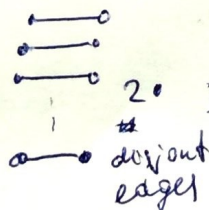 2
disjoint
edges